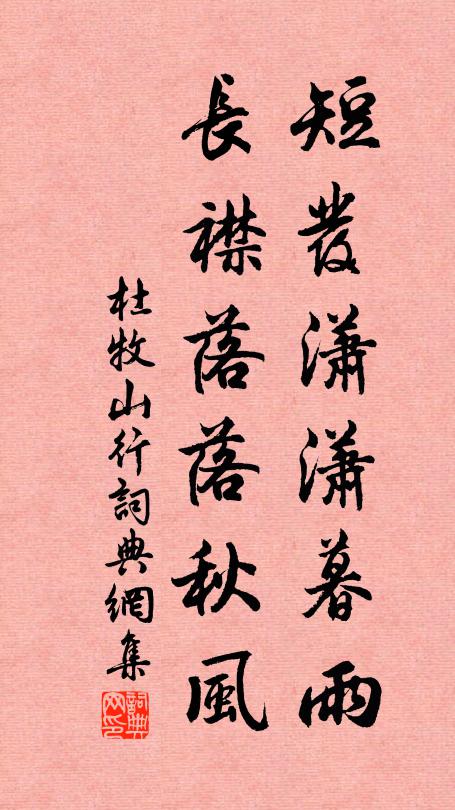 短發瀟瀟暮雨
長襟落落秋風
杜牧山行詞典網集
詞典网印